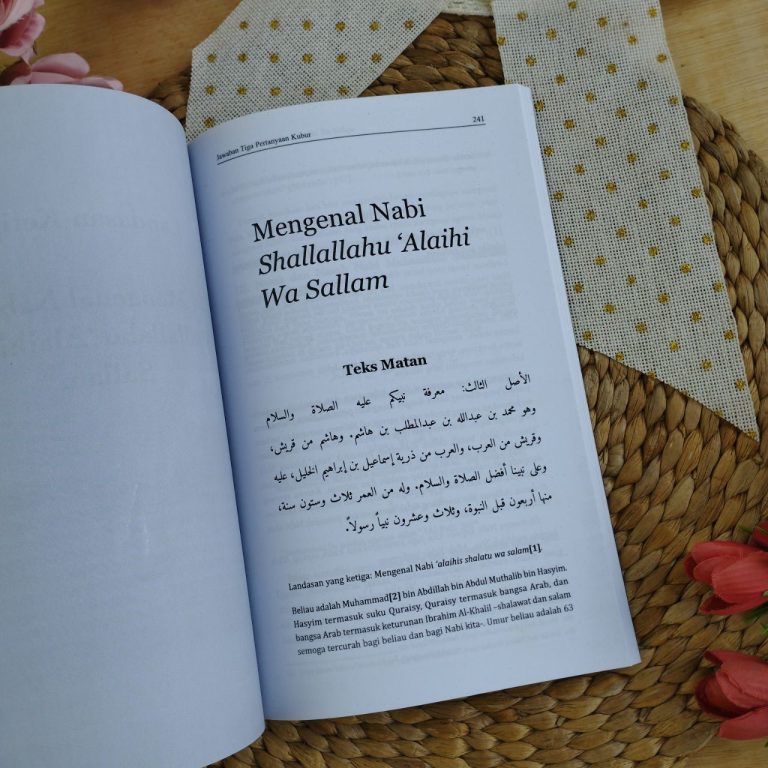 Jawaban Tiga Pertanyaan Kubur
241
Mengenal Nabi
Shallallahu ‘Alaihi
Wa Sallam
Teks Matan
الأصل الثالث: معرفة نبيكم عليه الصلاة والسلام
وهو محمد بن عبدالله بن عبدالمطلب بن هاشم. وهاشم من قريش،
وقريش من العرب، والعرب من ذرية إسماعيل بن إبراهيم الخليل، عليه
وعلى نبينا أفضل الصلاة والسلام. وله من العمر ثلاث وستون سنة،
منها أربعون قبل النبوة، وثلاث وعشرون نبياً رسولاً.
Landasan yang ketiga: Mengenal Nabi ‘alaihis shalatu wa salam[1].
Beliau adalah Muhammad[2] bin Abdillah bin Abdul Muthalib bin Hasyim.
Hasyim termasuk suku Quraisy, Quraisy termasuk bangsa Arab, dan
bangsa Arab termasuk keturunan Ibrahim Al-Khalil –shalawat dan salam
semoga tercurah bagi beliau dan bagi Nabi kita-. Umur beliau adalah 63